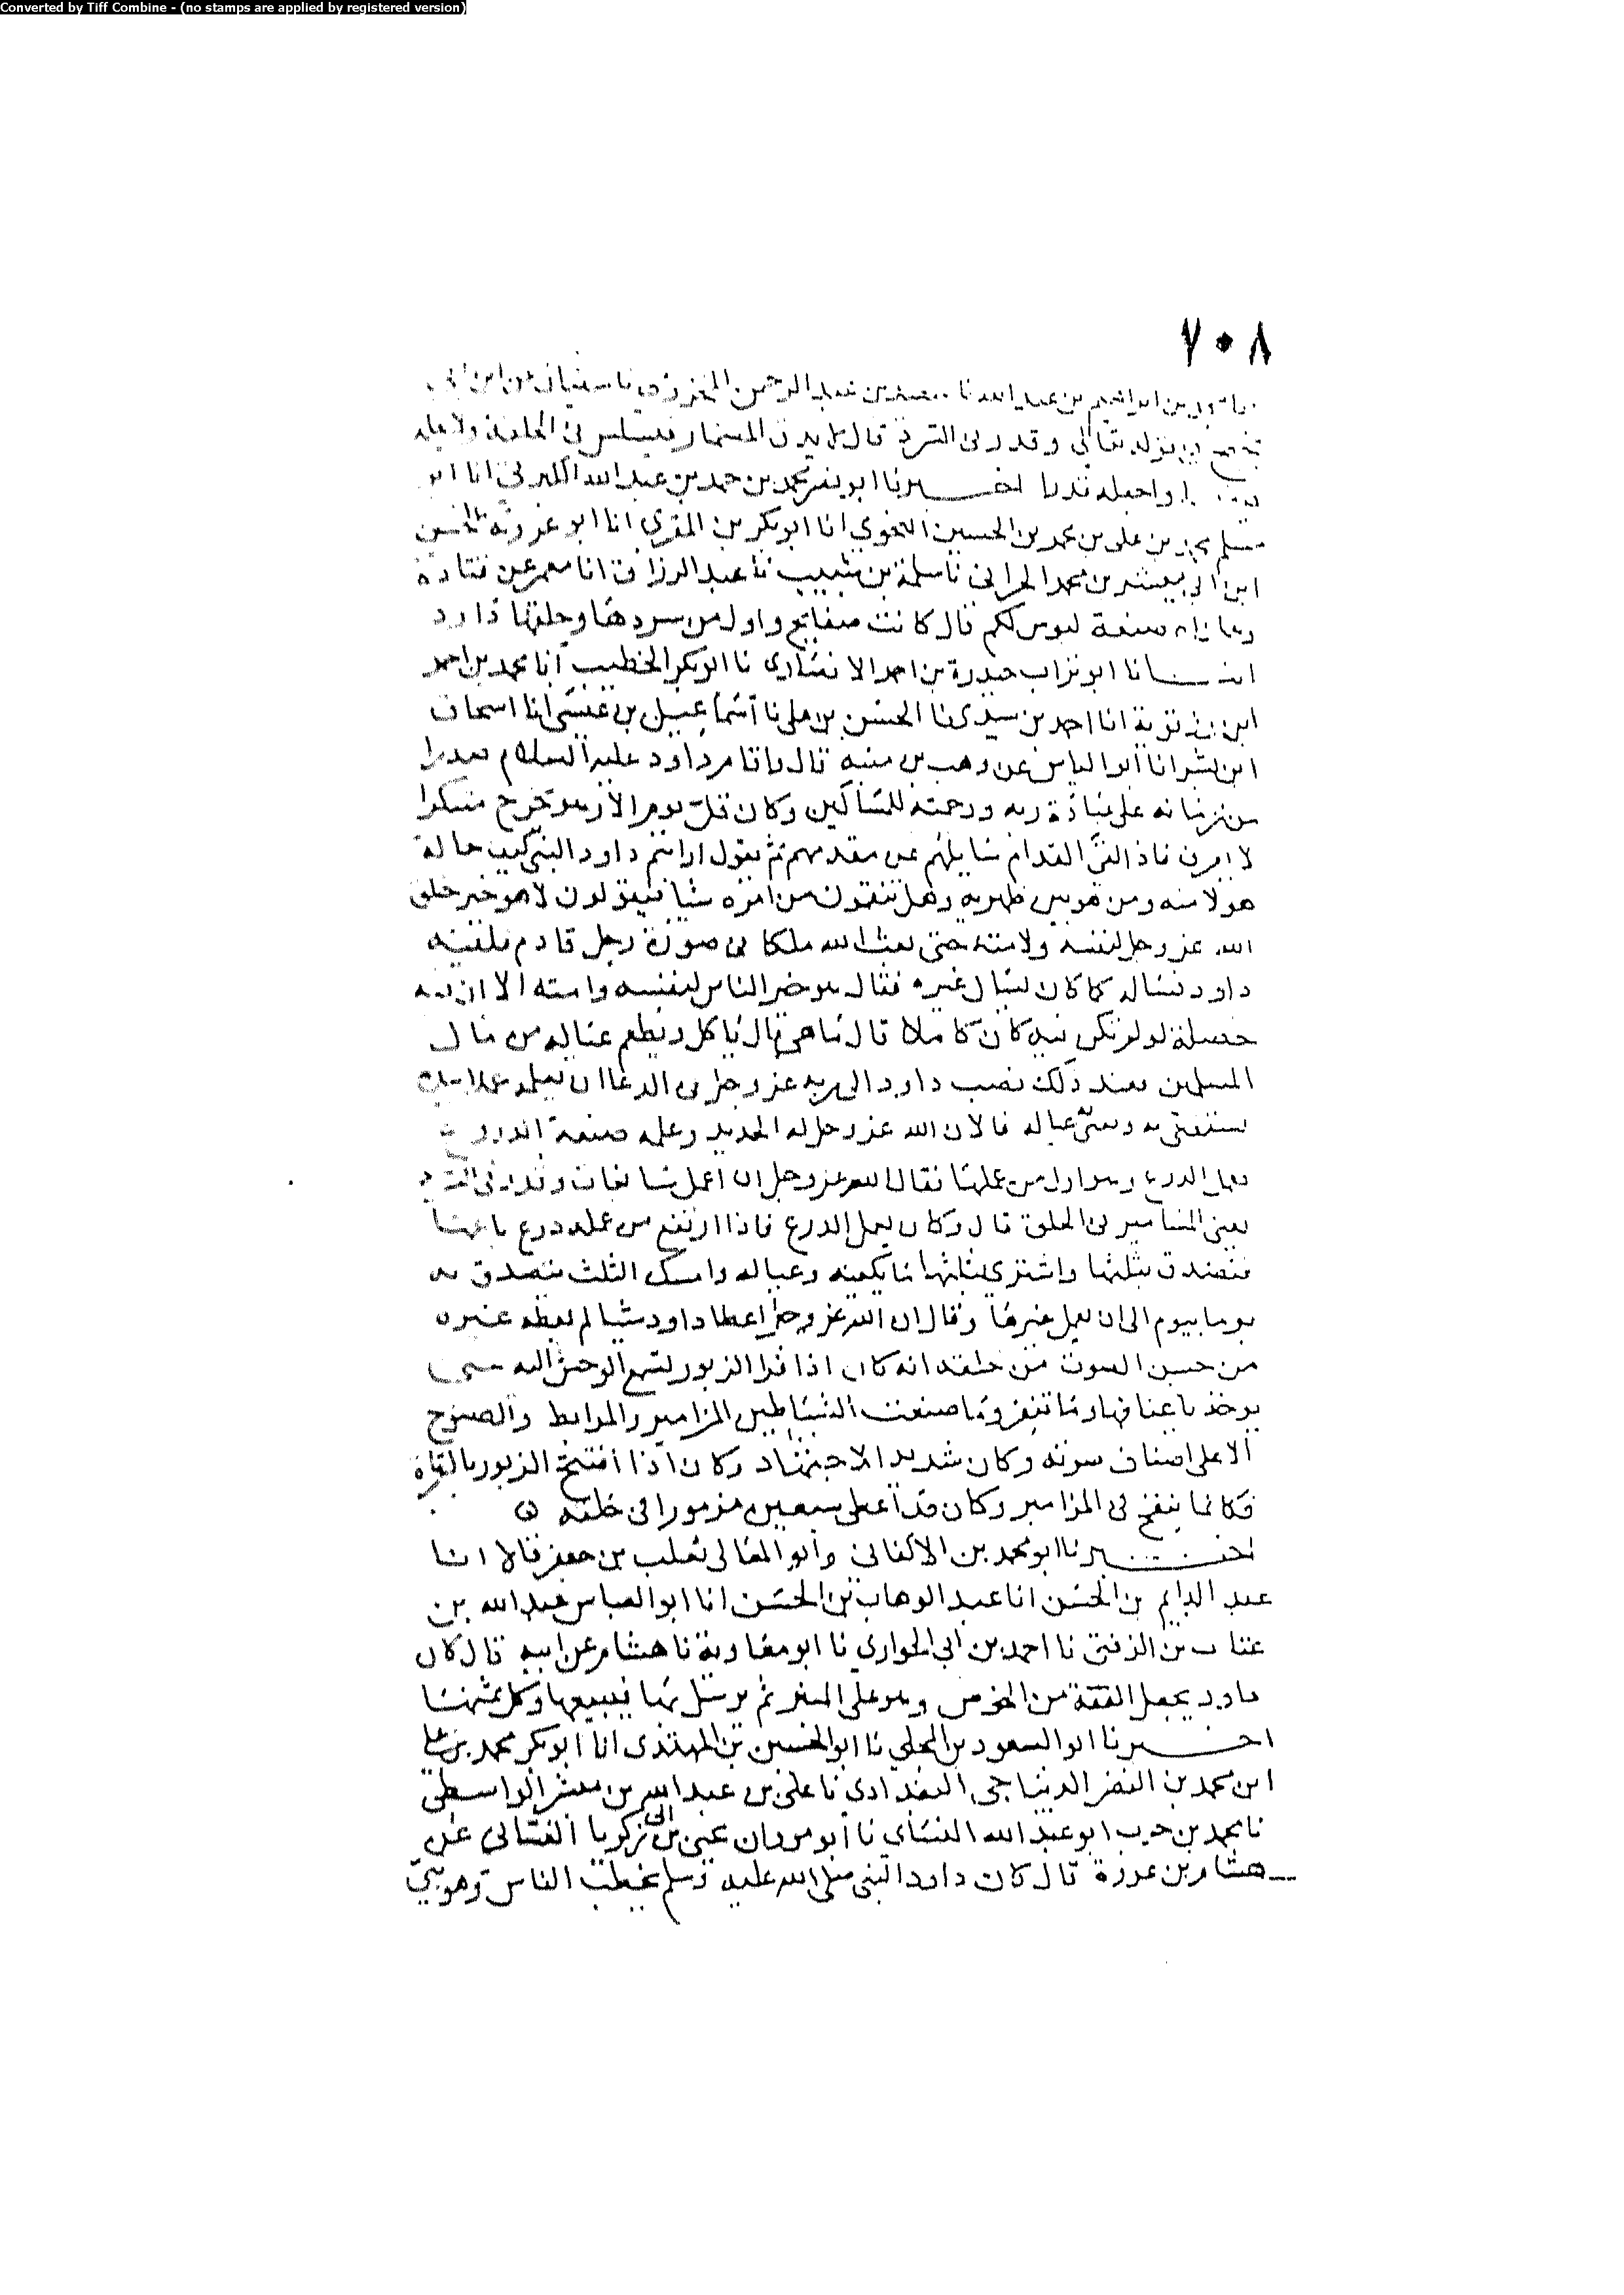 Converted by Tiff Combine - (no stamps are applied by registered version)
٧٠٨
بن ابراهيم بن عبد الله نا بن عبد الرحمن المخزومي نا سفيان عن ابن ابي
تعالى وقدر في السرد قال لا يدق المسمار فيسلس في الحلقة ولا
واجعله قدرا اخبرنا ابو نصر محمد بن حمد بن عبد الله الكبريتي انا ابو
مسلم محمد بن علي بن محمد بن الحسين النحوي انا ابو بكر بن المقري انا ابو عروبة الحسين
ابن ابي معشر بن محمد الحراني نا سلمة بن شبيب نا عبد الرزاق انا معمر عن قتادة
وعلمناه صنعة لبوس لكم قال كانت صفايح واول من سردها وحلقها داود
انبانا ابو تراب حيدرة بن احمد الانصاري نا ابو بكر الخطيب انا محمد بن احمد
ابن رزقوية انا احمد بن سيدي نا الحسن بن علي نا اسماعيل بن عيسى انا اسحاق
ابن بشر انا ابو الياس عن وهب بن منبه قال قام داود عليه السلام
من زمانه على عبادة ربه ورحمته للمساكين وكان قل يوم الا وهو يخرج متنكرا
لا يعرف فاذا لقي القدام سايلهم عن مقدمهم ثم يقول ارايتم داود النبي كيف حاله
هو لامته ومن هو بين ظهريه وهل تنقمون من امره شيا فيقولون لا هو خير خلق
الله عز وجل لنفسه ولامته حتى بعث الله ملكا في صورة رجل قادم فلقيه
داود فساله كما كان يسال غيره فقال هو خير الناس لنفسه وامته الا ان فيه
خصلة لو لم تكن فيه كان كاملا قال ما هي قال ياكل ويطعم عياله من مال
المسلمين فعند ذلك نصب داود الى ربه عز وجل في الدعا ان يعلمه عملا بيده
يستغني به ويغني عياله فالان الله عز وجل له الحديد وعلمه صنعة الدروع
فعمل الدرع وهو اول من عملها فقال الله عز وجل ان اعمل سابغات وقدر في السرد
يعني المسامير في الحلق قال وكان يعمل الدرع فاذا ارتفع من عمله درع باعها
فتصدق بثلثها واشترى بثلثها ما يكفيه وعياله وامسك الثلث يتصدق به
يوما بيوم الى ان يعمل غيرها وقال ان الله عز وجل اعطا داود شيا لم يعطه غيره
من حسن الصوت من خلقه انه كان اذا قرا الزبور تسمع الوحش اليه حتى
يوخذ باعناقها وما تنفر وما صنعت الشياطين المزامير والبرابط والصنوج
الا على اصناف صوته وكان شديد الاجتهاد وكان اذا افتتح الزبور بالقراة
فكانما ينفخ في المزامير وكان قد اعطي سبعين مزمورا في حلقه
اخبرنا ابو محمد بن الاكفاني وابو المعالي ثعلب بن جعفر قالا انا
عبد الدايم بن الحسن انا عبد الوهاب بن الحسن انا ابو العباس عبد الله بن
عتاب بن الزفتي نا احمد بن ابي الحواري نا ابو معاوية نا هشام عن ابيه قال كان
داود يجعل القفة من الخوص وهو على المنبر ثم يرسل بها فيبيعها وياكل ثمنها
اخبرنا ابو السعود بن المجلي نا ابو الحسين بن المهتدي انا ابو بكر محمد بن علي
ابن محمد بن النضر الديباجي البغدادي نا علي بن عبد الله بن مبشر الواسطي
نا محمد بن حرب ابو عبد الله النشاي نا ابو مروان يحيى بن ابي زكريا الغساني عن
هشام بن عروة قال كان داود النبي صلى الله عليه وسلم يخطب الناس وهو